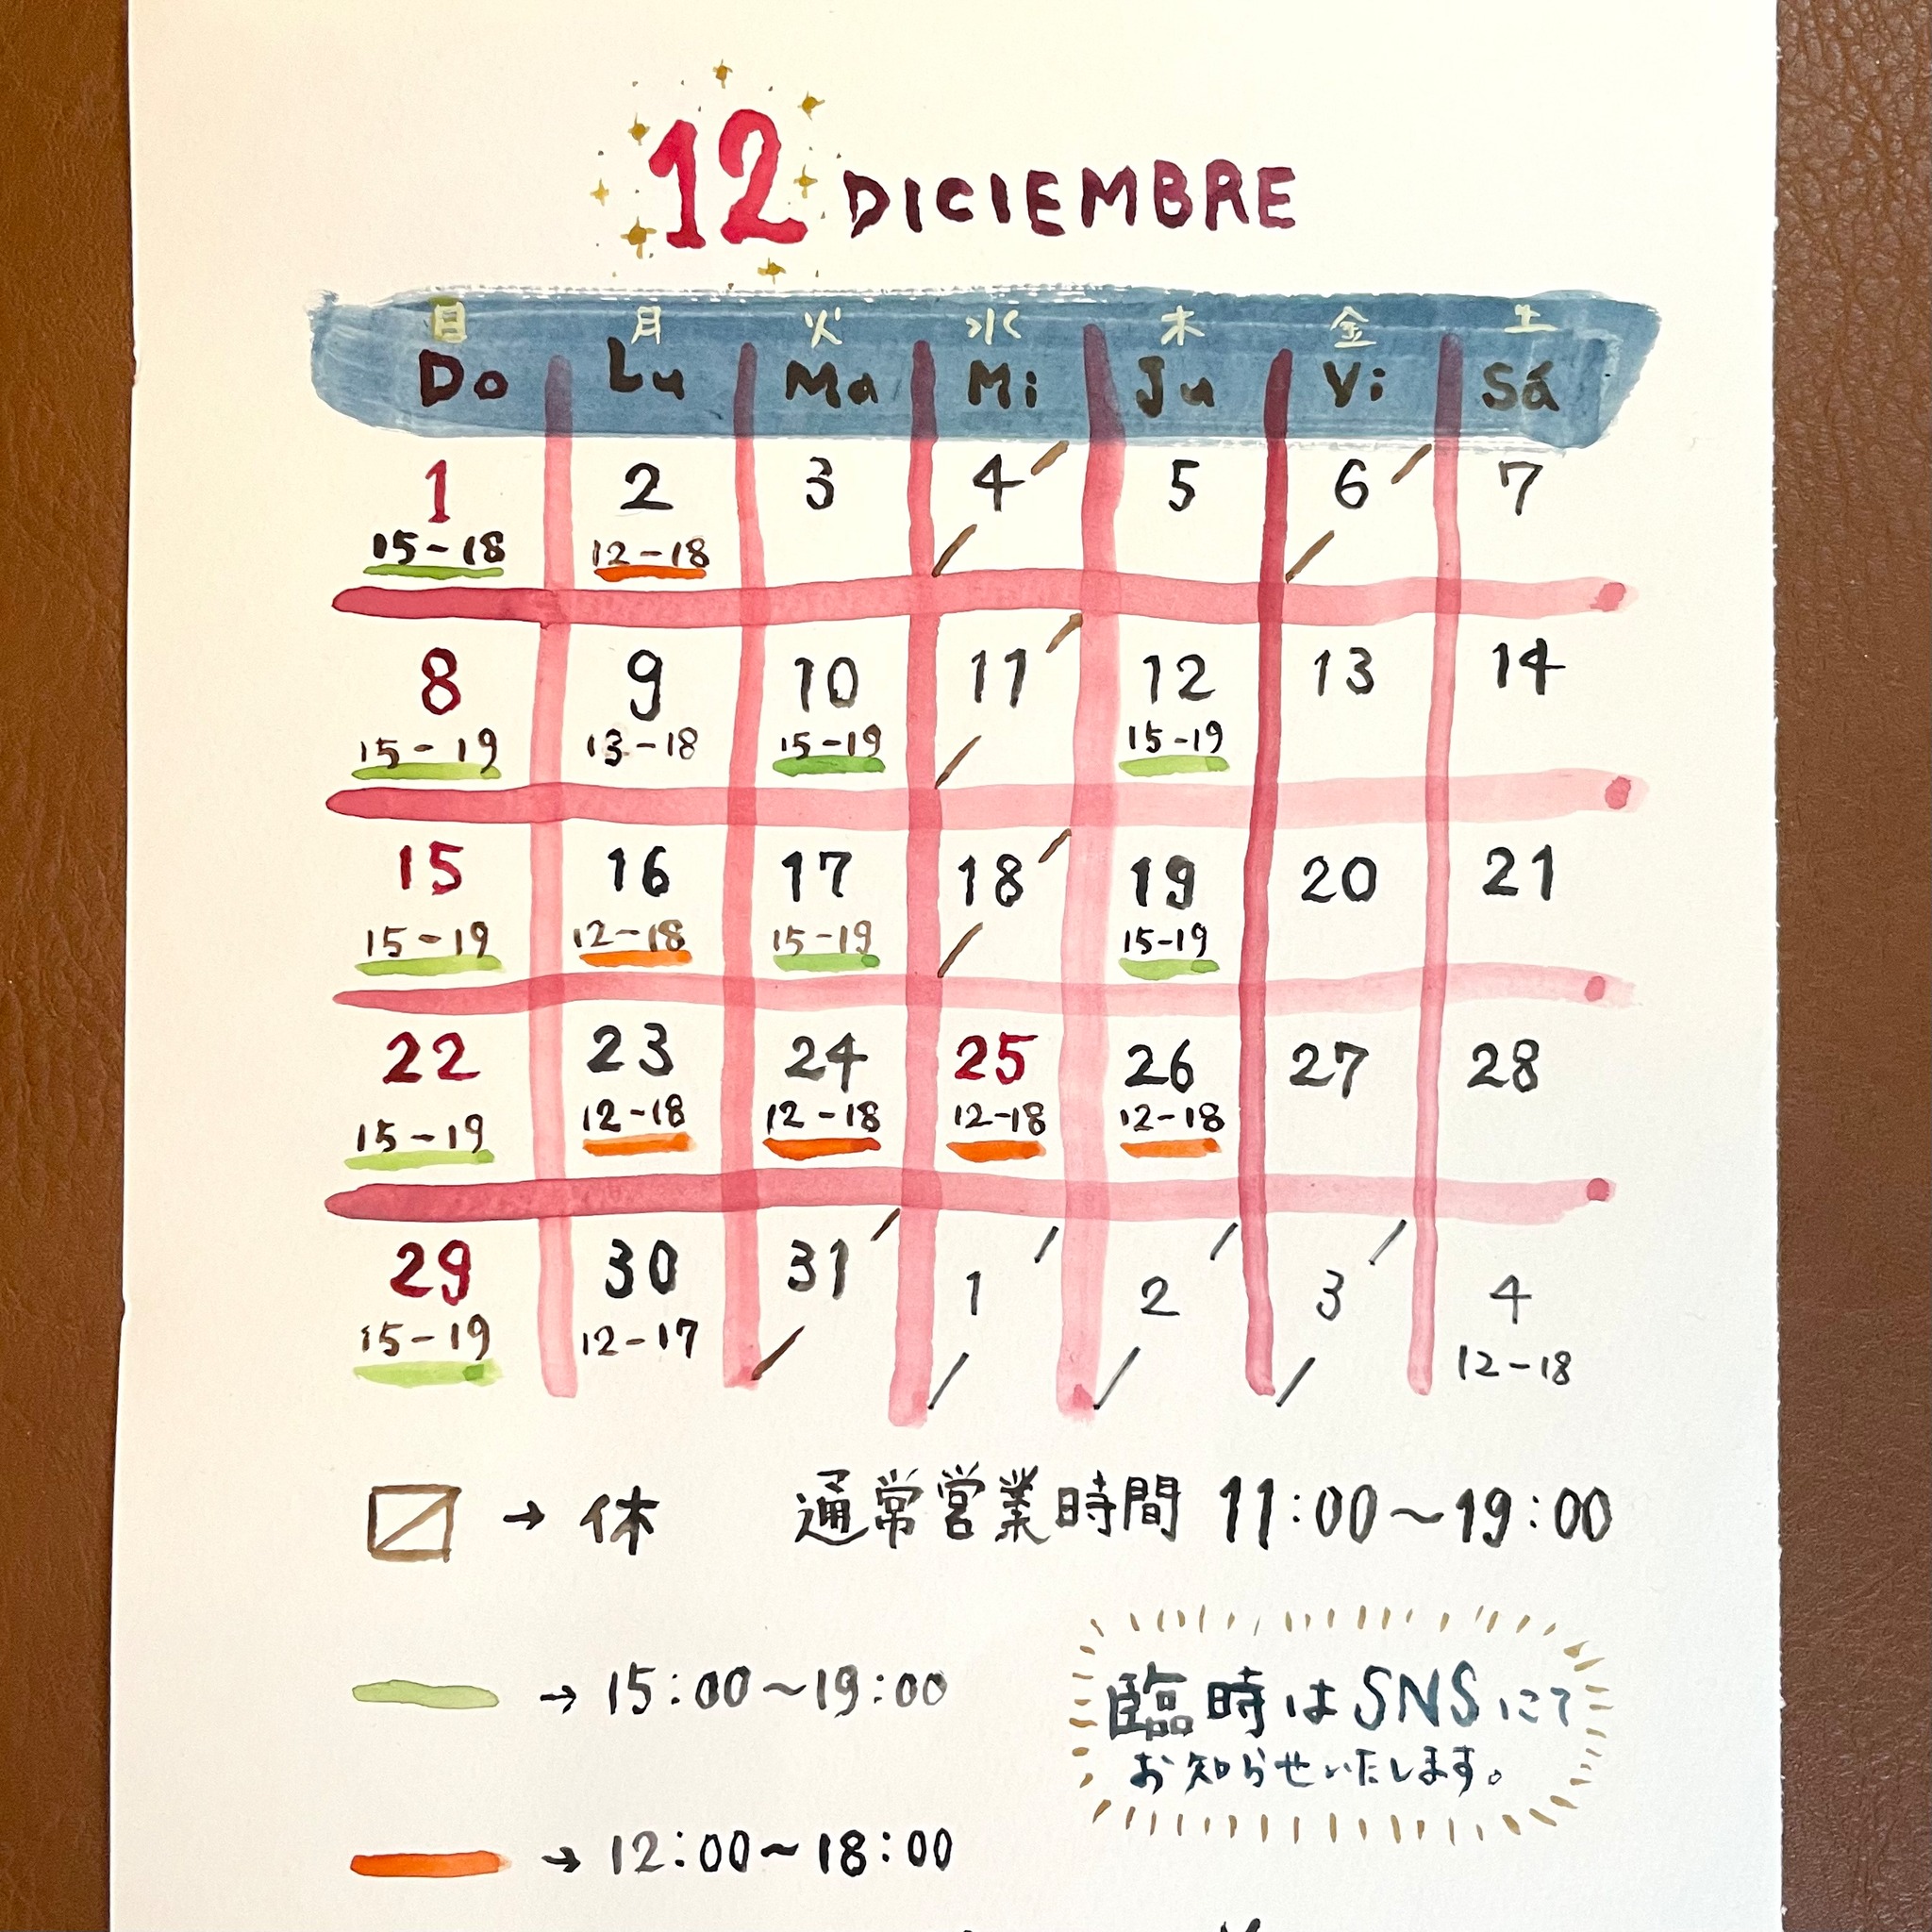 12 DICIEMBRE
日 月 火 水 木 金 土
Do Lu Ma Mi Ju Vi Sá
1 2 3 4 5 6 7
15-18 12-18
8 9 10 11 12 13 14
15-19 13-18 15-19 15-19
15 16 17 18 19 20 21
15-19 12-18 15-19 15-19
22 23 24 25 26 27 28
15-19 12-18 12-18 12-18 12-18
29 30 31 1 2 3 4
15-19 12-17 12-18
→ 休 通常営業時間 11:00~19:00
→ 15:00~19:00
臨時はSNSにて
お知らせいたします。
→ 12:00~18:00